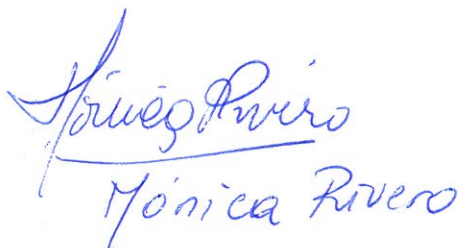 Mónica Rivero
Mónica Rivero